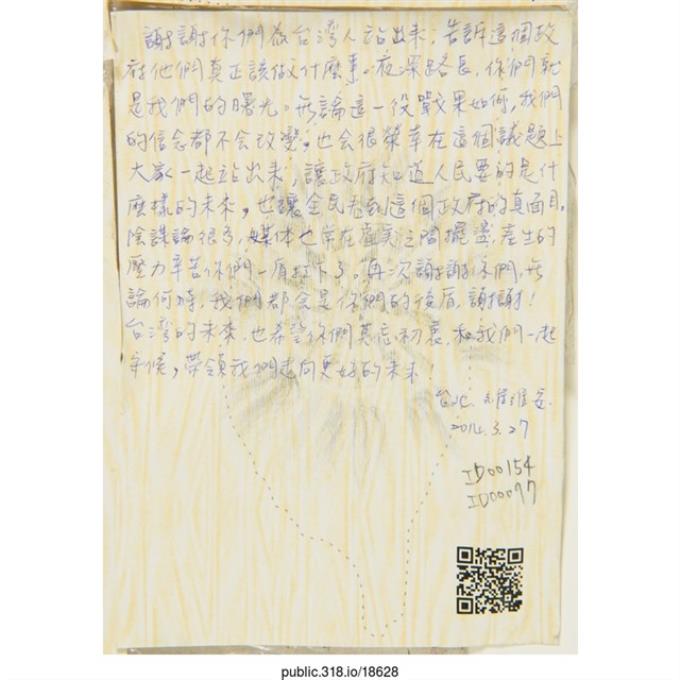 謝謝你們為台湾人站出來,告訴這個政
府他們真正該做什麼事。夜深路長,你們就
是我們的曙光。無論這一役戰果如何,我們
的信念都不会改變,也会很榮幸在這個議題上
大家一起站出來,讓政府知道人民要的是什
麼樣的未來,也讓全民看到這個政府的真面目。
陰謀論很多,媒体也常在虛實之間擺盪,產生的
壓力辛苦你們一肩扛下了。再次謝謝你們,無
論何時,我們都会是你們的後盾,謝謝!
台湾的未來,也希望你們莫忘初衷,和我們一起
守候,帶領我們走向更好的未來!
台北
2014.3.27
ID00154
ID00097
public.318.io/18628